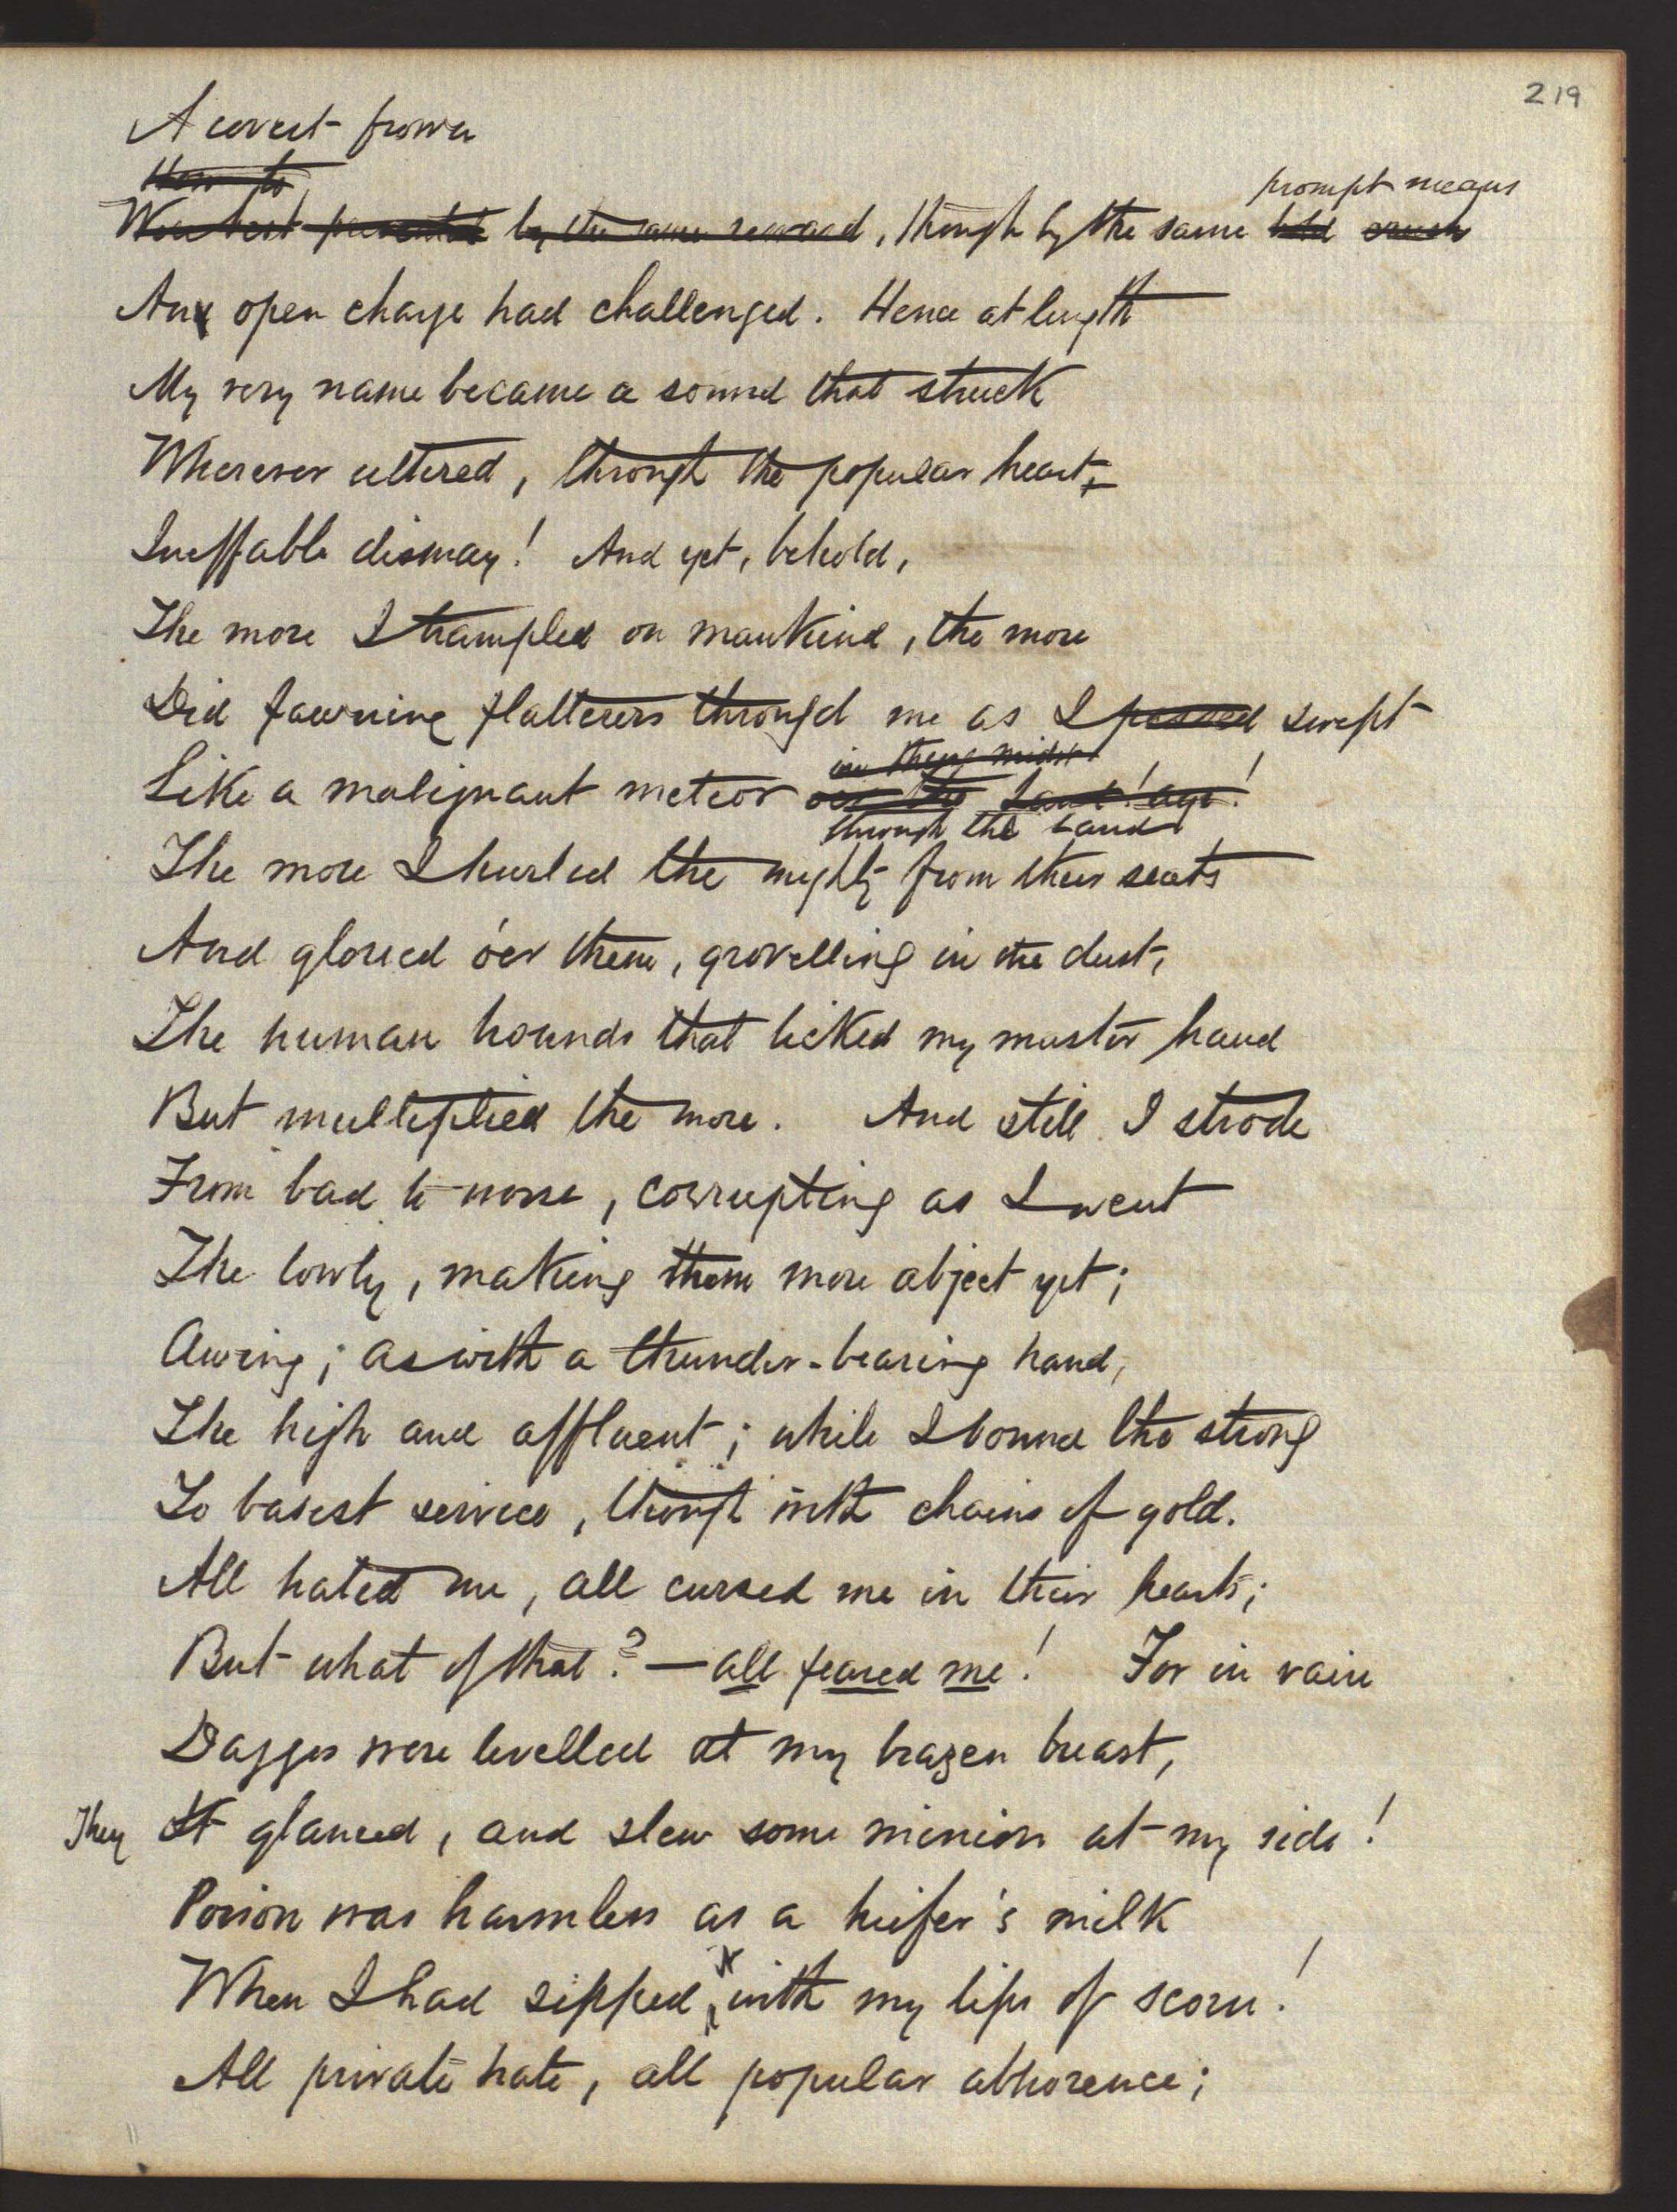 219
A covert frown
prompt means
by the same reward, though by the same
Any open charge had challenged. Hence at length
My very name became a sound that struck
Wherever uttered, through the popular heart,
Ineffable dismay! And yet, behold,
The more I trampled on mankind, the more
Did fawning flatterers throng'd me as I passed swept
in their midst
Like a malignant meteor o'er the Land! age!
through the Land
The more I hurled the mighty from their seats
And gloried o'er them, grovelling in the dust,
The human hounds that licked my master hand
But multiplied the more. And still I strode
From bad to worse, corrupting as I went
The lowly, making them more abject yet;
Awing; as with a thunder-bearing hand,
The high and affluent; while I bound the strong
To basest service, though with chains of gold.
All hated me, all cursed me in their hearts;
But what of that? — all feared me! For in vain
Daggers were levelled at my brazen breast,
They It glanced, and slew some minion at my side!
Poison was harmless as a heifer's milk
When I had sipped it with my lips of scorn!
All private hate, all popular abhorence;